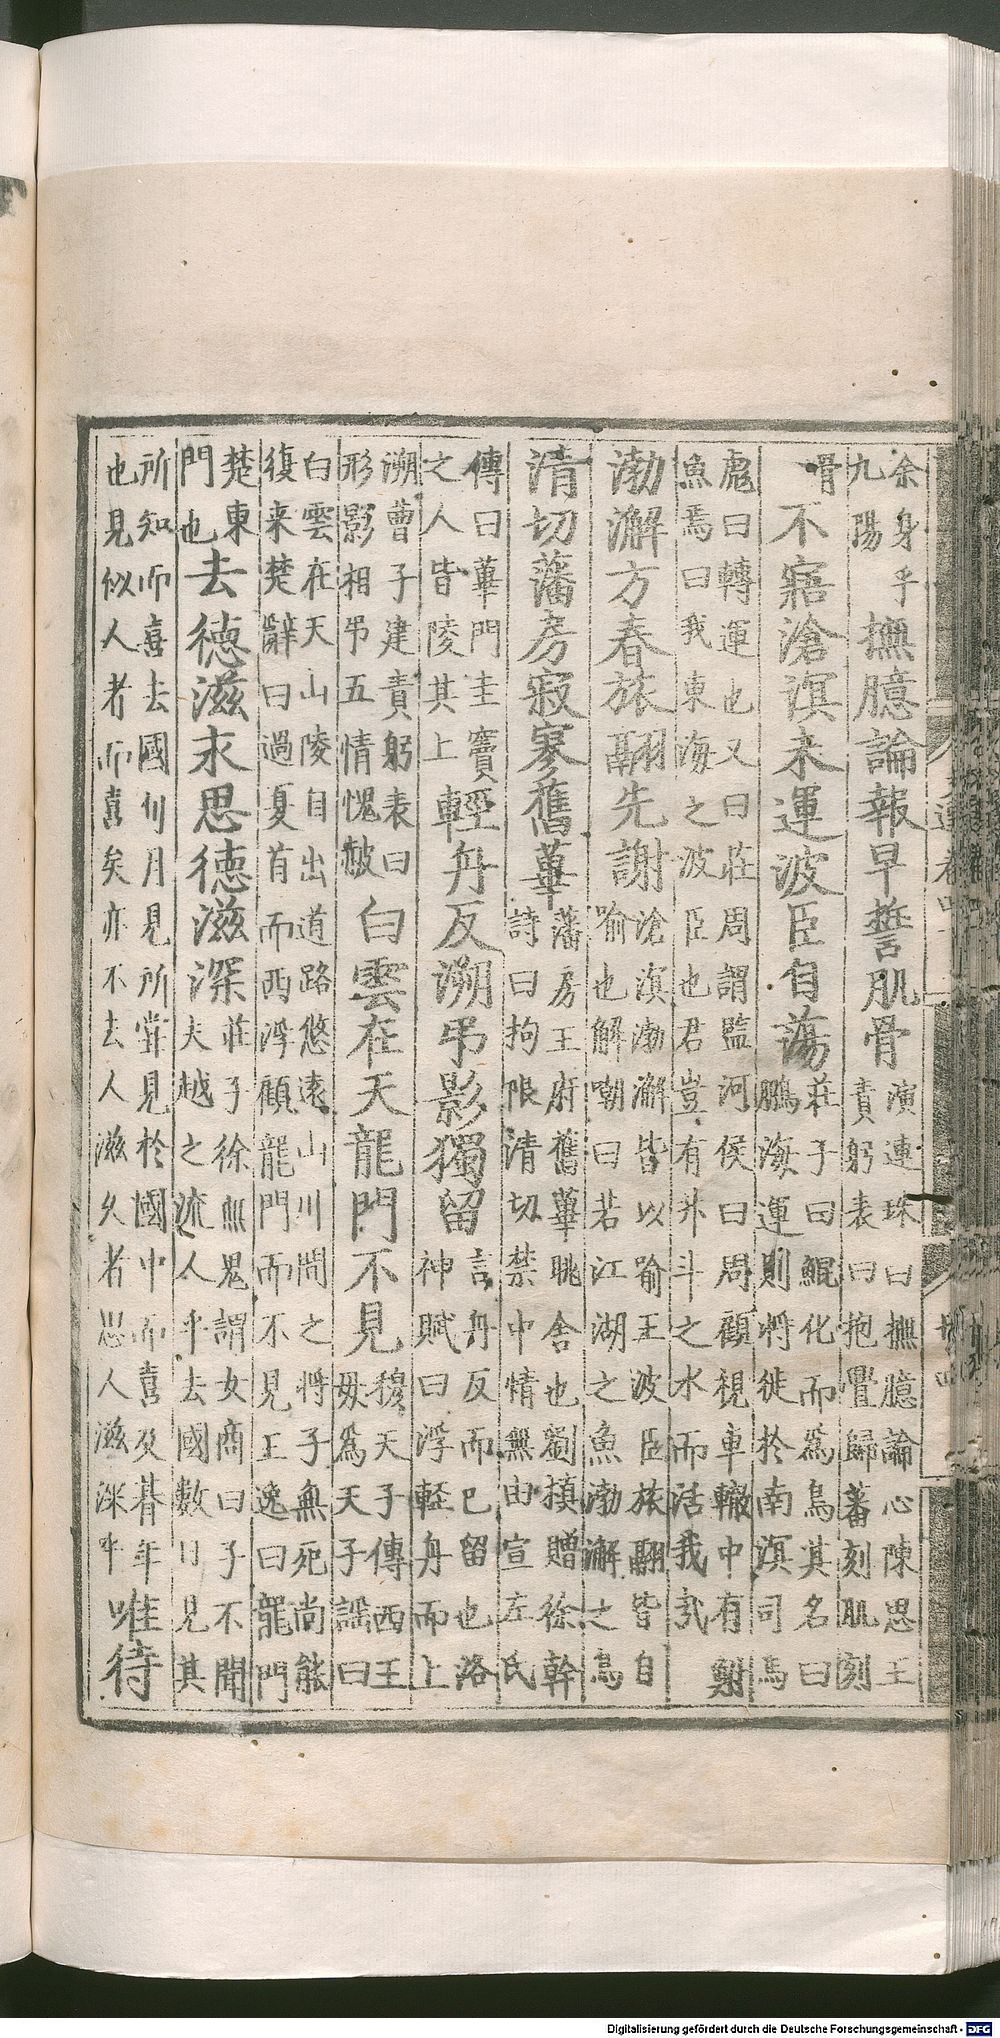 余身乎
九陽
撫臆論報早誓肌骨
演連珠曰撫臆論心陳思王
責躬表曰抱舋歸蕃刻肌刻
骨
不寤滄溟未運波臣自蕩
莊子曰鯤化而爲鳥其名曰
鵬海運則將徙於南溟司馬
彪曰轉運也又曰莊周謂監河侯曰周顧視車轍中有鮒
魚焉曰我東海之波臣也君豈有升斗之水而活我㢤
渤澥方春旅翮先謝
滄溟渤澥皆以喻王波臣旅翮皆自
喻也解嘲曰若江湖之魚渤澥之鳥
清切藩房寂寥舊蓽
藩房王府舊蓽眺舍也劉楨贈徐幹
詩曰拘限清切禁中情無由宣左氏
傳曰蓽門圭竇
之人皆陵其上
輕舟反溯弔影獨留
言舟反而已留也洛
神賦曰浮輕舟而上
溯曹子建責躬表曰
形影相弔五情愧赧
白雲在天龍門不見
穆天子傳西王
母爲天子謡曰
白雲在天山陵自出道路悠遠山川間之將子無死尚能
復来楚辭曰過夏首而西浮顧龍門而不見王逸曰龍門
楚東
門也
去德滋永思德滋深
莊子徐無鬼謂女商曰子不聞
夫越之流人乎去國數日見其
所知而喜去國旬月見所嘗見於國中而喜及朞年
也見似人者而喜矣亦不去人滋久者思人滋深乎
唯待
Digitalisierung gefördert durch die Deutsche Forschungsgemeinschaft - DFG